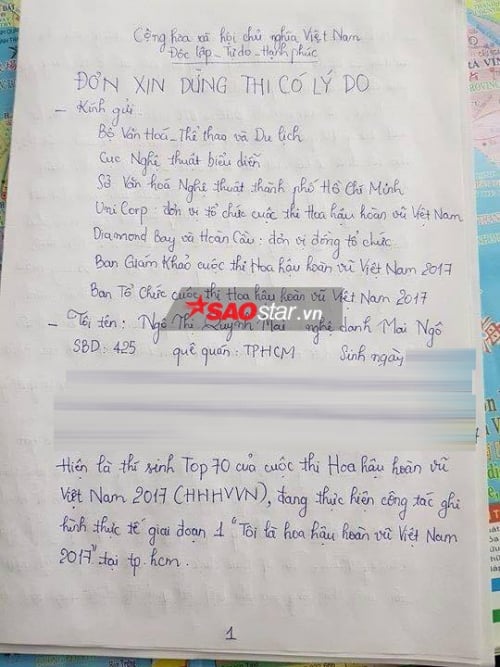 Cộng hòa xã hội chủ nghĩa Việt Nam
Độc lập - Tự do - Hạnh phúc
ĐƠN XIN DỪNG THI CÓ LÝ DO
- Kính gửi
Bộ Văn Hoá - Thể thao và Du lịch
Cục Nghệ thuật biểu diễn
Sở Văn hoá Nghệ thuật thành phố Hồ Chí Minh
Uni Corp : đơn vị tổ chức cuộc thi Hoa hậu hoàn vũ Việt Nam
Diamond Bay và Hoàn Cầu : đơn vị đồng tổ chức
Ban Giám Khảo cuộc thi Hoa hậu hoàn vũ Việt Nam 2017
Ban Tổ Chức cuộc thi Hoa hậu hoàn vũ Việt Nam 2017
SAOstar.vn
- Tôi tên : Ngô Thị Quỳnh Mai nghệ danh Mai Ngô
SBD : 425 quê quán : TPHCM Sinh ngày
Hiện là thí sinh Top 70 của cuộc thi Hoa hậu hoàn vũ
Việt Nam 2017 (HHHVVN), đang thực hiện công tác ghi
hình thực tế giai đoạn 1 "Tôi là hoa hậu hoàn vũ Việt Nam
2017" tại tp.hcm.
1